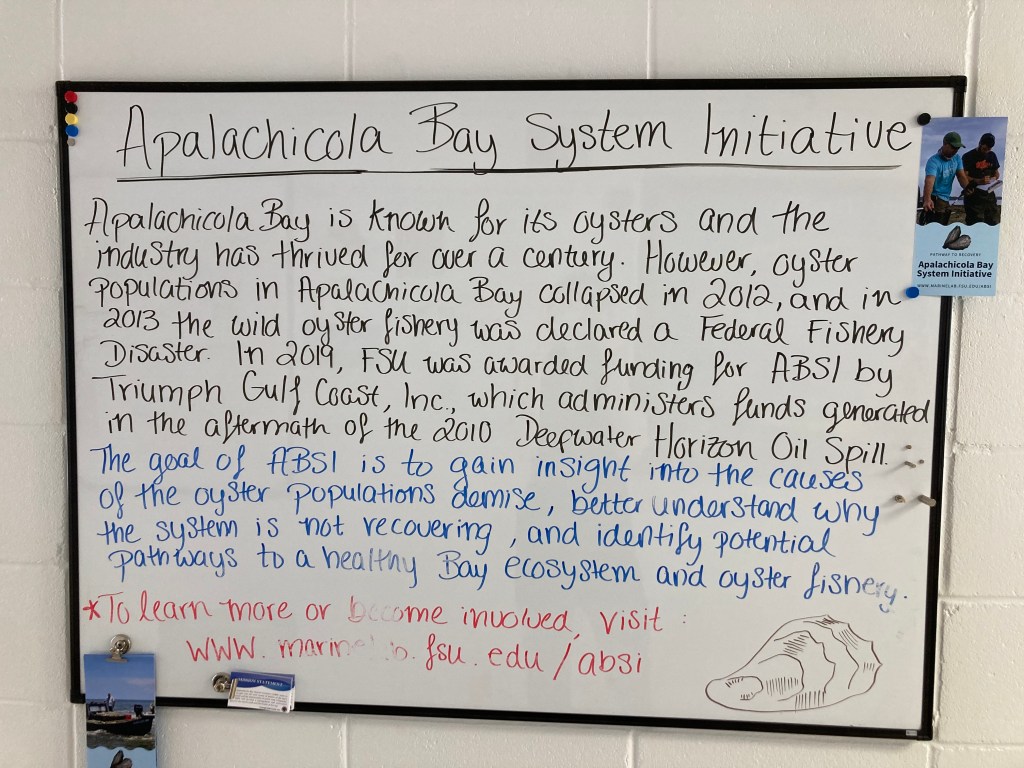 Apalachicola Bay System Initiative
Apalachicola Bay is known for its oysters and the
industry has thrived for over a century. However, oyster
populations in Apalachicola Bay collapsed in 2012, and in
2013 the wild oyster fishery was declared a Federal Fishery
Disaster. In 2019, FSU was awarded funding for ABSI by
Triumph Gulf Coast, Inc., which administers funds generated
in the aftermath of the 2010 Deepwater Horizon Oil Spill.
The goal of ABSI is to gain insight into the causes
of the oyster populations demise, better understand why
the system is not recovering, and identify potential
pathways to a healthy Bay ecosystem and oyster fishery.
*To learn more or become involved, visit :
www.marinelab.fsu.edu/absi
PATHWAY TO RECOVERY
Apalachicola Bay
System Initiative
WWW.MARINELAB.FSU.EDU/ABSI
MISSION STATEMENT